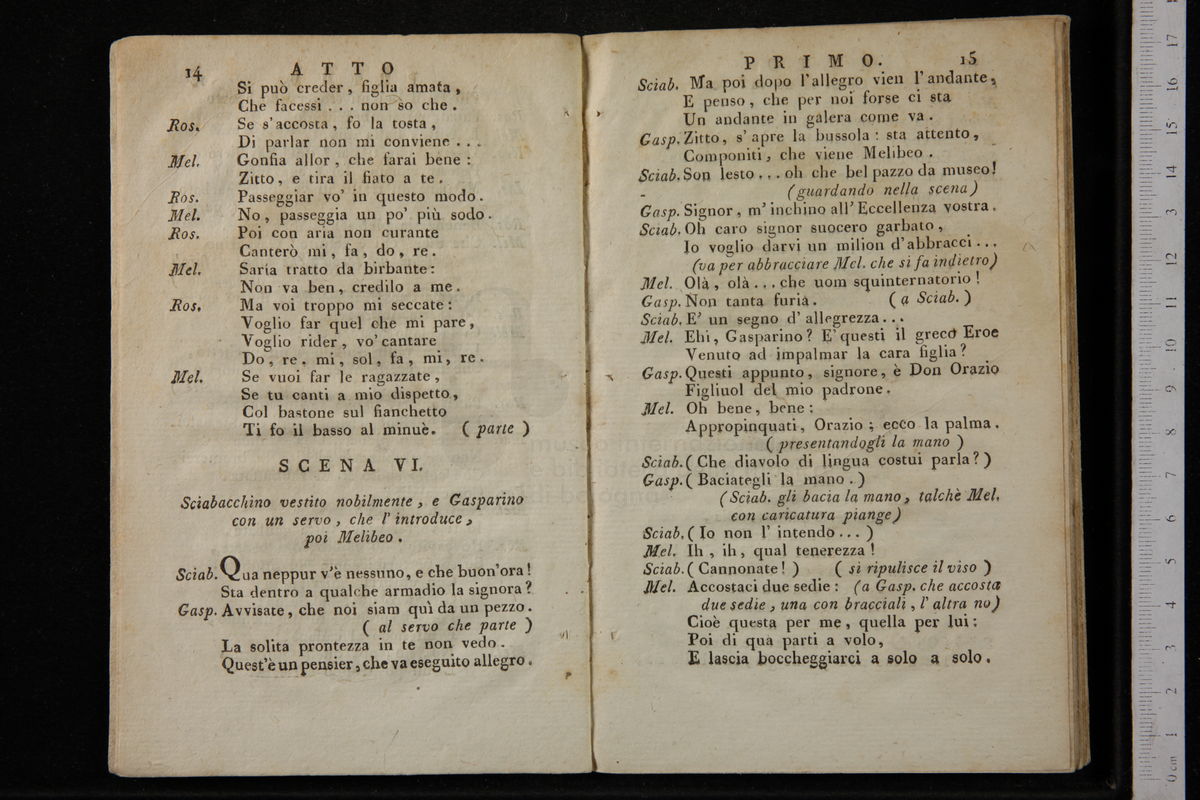 14 ATTO
Si può creder, figlia amata,
Che facessi . . . non so che.
Ros. Se s'accosta, fo la tosta,
Di parlar non mi conviene . . .
Mel. Gonfia allor, che farai bene:
Zitto, e tira il fiato a te.
Ros. Passeggiar vo' in questo modo.
Mel. No, passeggia un po' più sodo.
Ros. Poi con aria non curante
Canterò mi, fa, do, re.
Mel. Saria tratto da birbante:
Non va ben, credilo a me.
Ros. Ma voi troppo mi seccate:
Voglio far quel che mi pare,
Voglio rider, vo' cantare
Do, re, mi, sol, fa, mi, re.
Mel. Se vuoi far le ragazzate,
Se tu canti a mio dispetto,
Col bastone sul fianchetto
Ti fo il basso al minuè. ( parte )
SCENA VI.
Sciabacchino vestito nobilmente, e Gasparino
con un servo, che l'introduce,
poi Melibeo.
Sciab. Qua neppur v'è nessuno, e che buon'ora!
Sta dentro a qualche armadio la signora?
Gasp. Avvisate, che noi siam quì da un pezzo.
( al servo che parte )
La solita prontezza in te non vedo.
Quest'è un pensier, che va eseguito allegro.
PRIMO. 15
Sciab. Ma poi dopo l'allegro vien l'andante,
E penso, che per noi forse ci sta
Un andante in galera come va.
Gasp. Zitto, s'apre la bussola: sta attento,
Componiti, che viene Melibeo.
Sciab. Son lesto... oh che bel pazzo da museo!
(guardando nella scena)
Gasp. Signor, m'inchino all'Eccellenza vostra.
Sciab. Oh caro signor suocero garbato,
Io voglio darvi un milion d'abbracci...
(va per abbracciare Mel. che si fa indietro)
Mel. Olà, olà... che uom squinternatorio!
Gasp. Non tanta furia. ( a Sciab. )
Sciab. E' un segno d'allegrezza...
Mel. Ehi, Gasparino? E' questi il greco Eroe
Venuto ad impalmar la cara figlia?
Gasp. Questi appunto, signore, è Don Orazio
Figliuol del mio padrone.
Mel. Oh bene, bene:
Appropinquati, Orazio; ecco la palma.
( presentandogli la mano )
Sciab. ( Che diavolo di lingua costui parla? )
Gasp. ( Baciategli la mano. )
(Sciab. gli bacia la mano, talchè Mel.
con caricatura piange)
Sciab. ( Io non l'intendo... )
Mel. Ih, ih, qual tenerezza!
Sciab. ( Cannonate! ) ( si ripulisce il viso )
Mel. Accostaci due sedie: (a Gasp. che accosta
due sedie, una con bracciali, l'altra no)
Cioè questa per me, quella per lui:
Poi di qua parti a volo,
E lascia boccheggiarci a solo a solo.